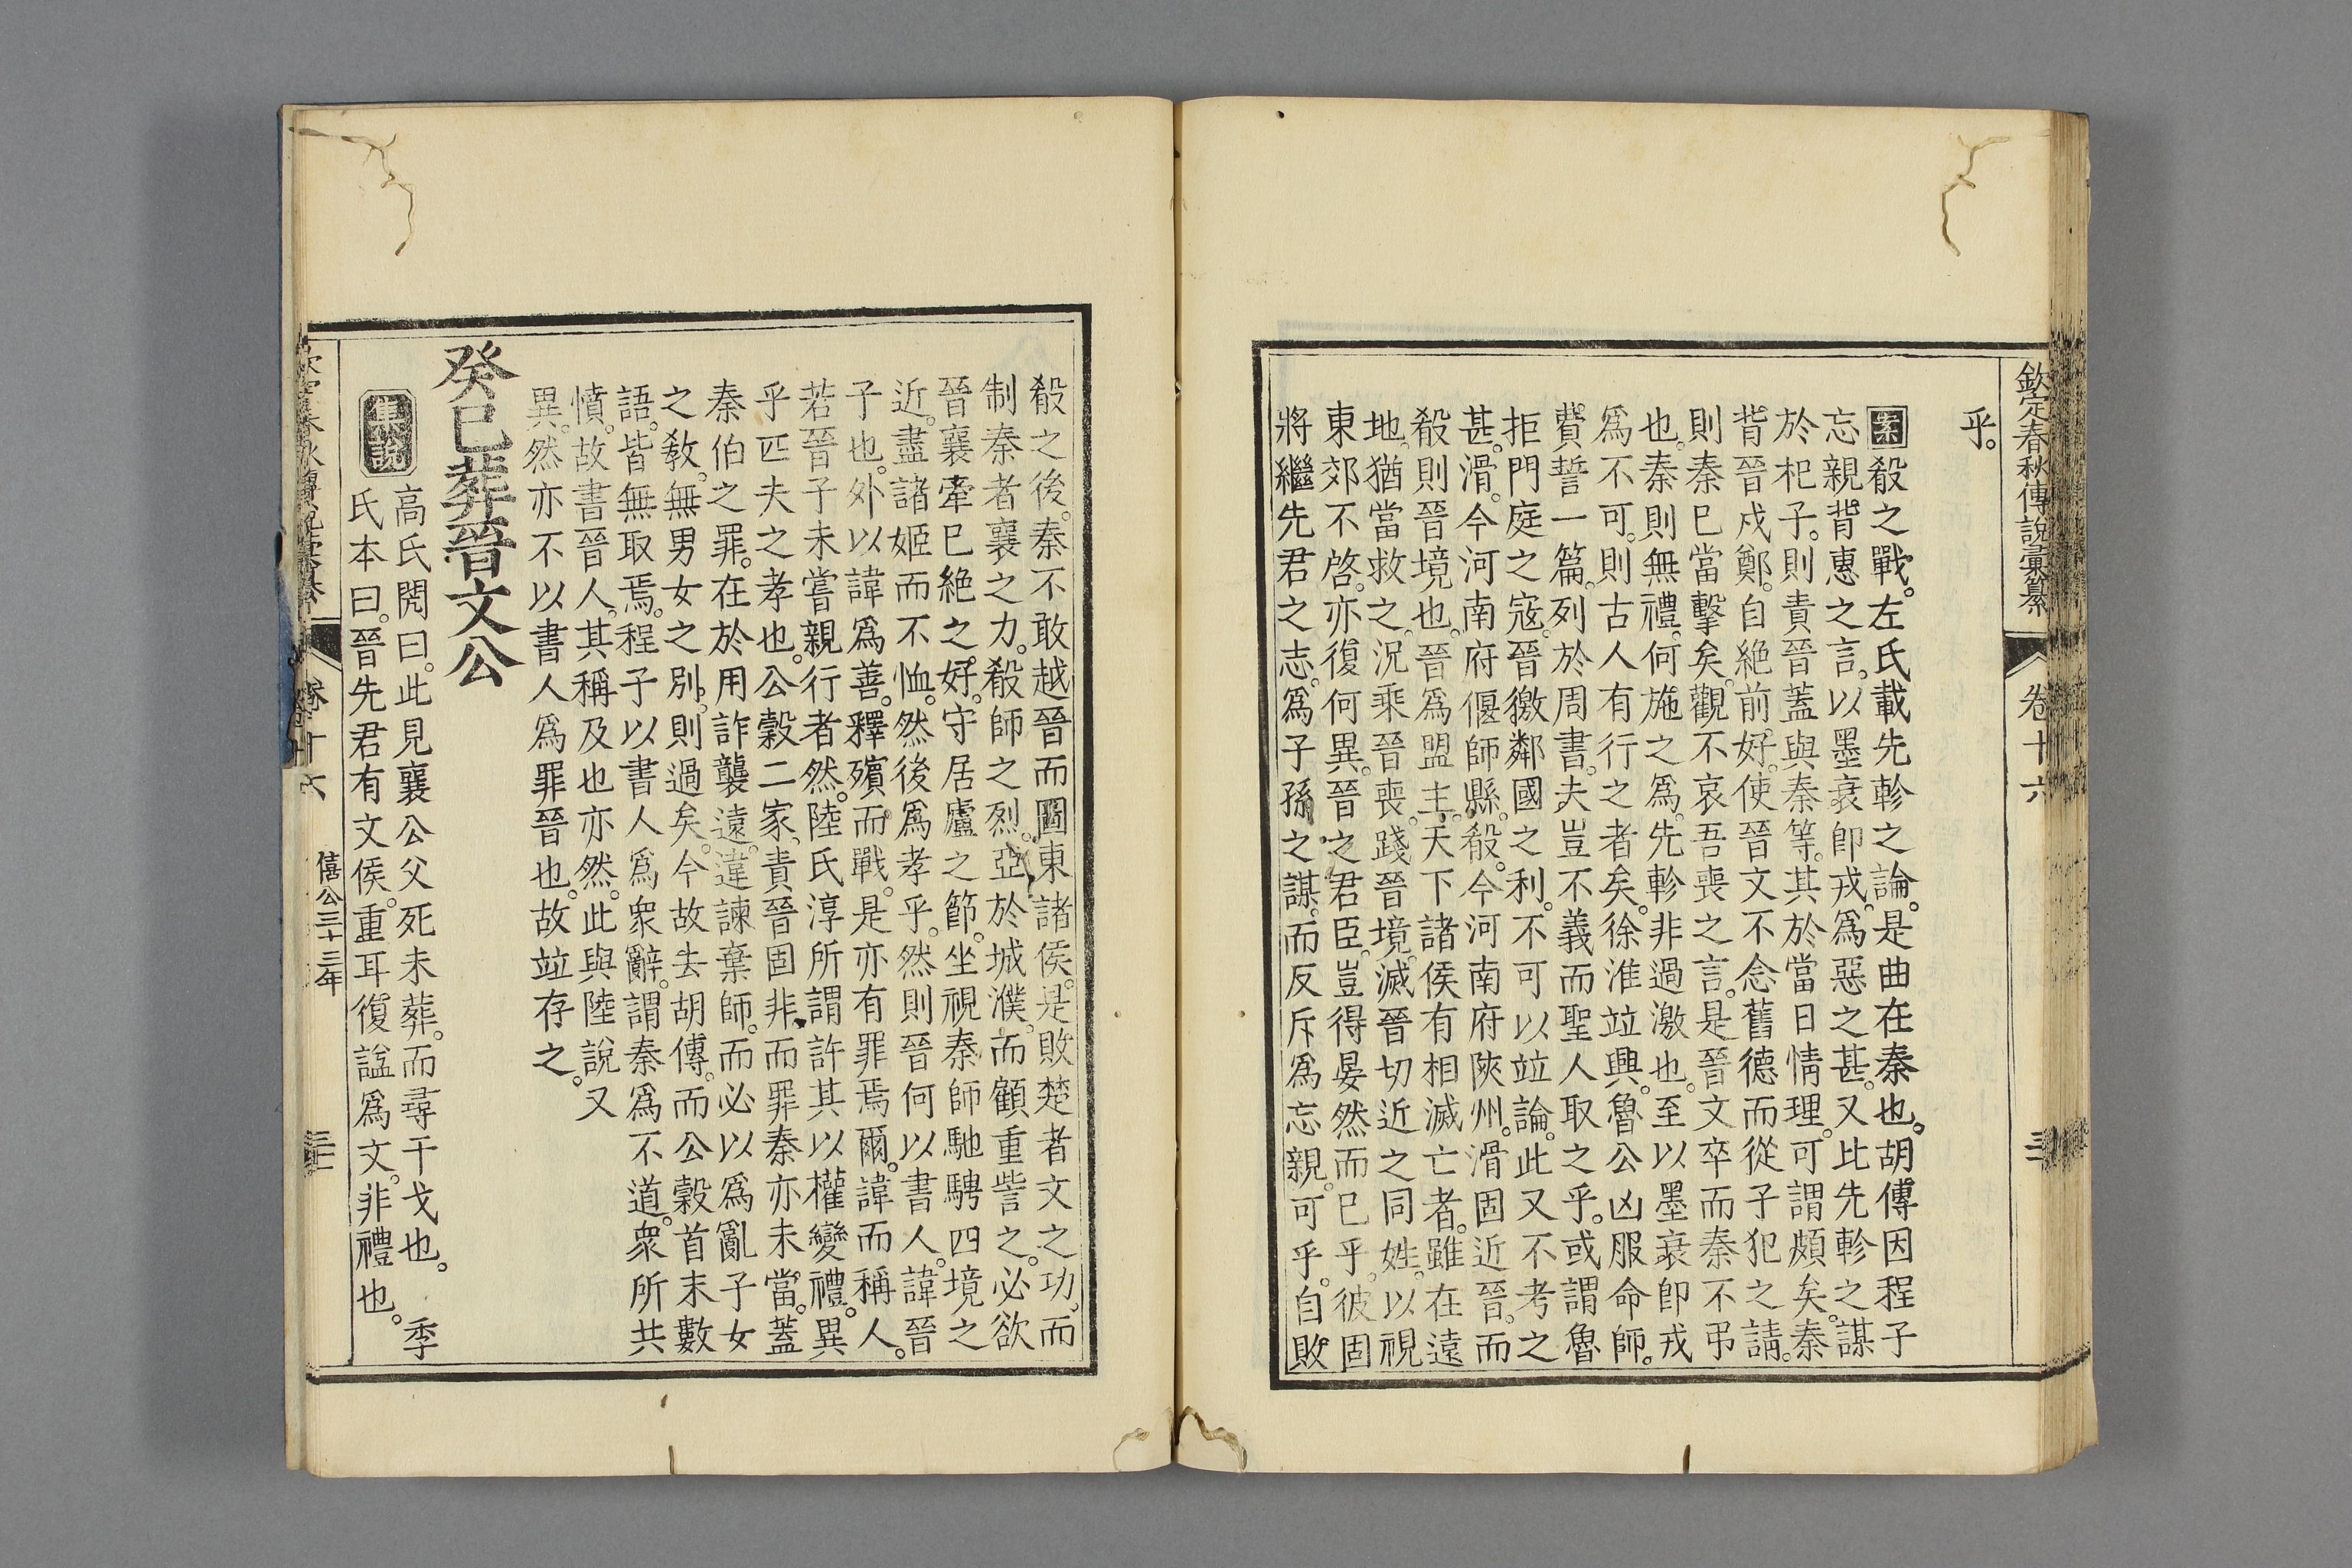 欽定春秋傳說彙纂 卷十六
乎。
案 殽之戰。左氏載先軫之論。是曲在秦也。胡傳因程子
忘親背惠之言。以墨衰卽戎。爲惡之甚。又比先軫之謀
於杞子。則責晉蓋與秦等。其於當日情理。可謂頗矣。秦
背晉戍鄭。自絕前好。使晉文不念舊德而從子犯之請。
則秦巳當擊矣。觀不哀吾喪之言。是晉文卒而秦不弔
也。秦則無禮。何施之爲。先軫非過激也。至以墨衰卽戎
爲不可。則古人有行之者矣。徐淮竝興。魯公凶服命師。
費誓一篇。列於周書。夫豈不義而聖人取之乎。或謂魯
拒門庭之寇。晉徼鄰國之利。不可以竝論。此又不考之
甚。滑。今河南府偃師縣。殽。今河南府陝州。滑固近晉。而
殽則晉境也。晉爲盟主。天下諸侯有相滅亡者。雖在遠
地。猶當救之。況乘晉喪。踐晉境。滅晉切近之同姓。以視
東郊不啓。亦復何異。晉之君臣。豈得晏然而巳乎。彼固
將繼先君之志。爲子孫之謀。而反斥爲忘親。可乎。自敗
殽之後。秦不敢越晉而圖東諸侯。是敗楚者文之功。而
制秦者襄之力。殽師之烈。亞於城濮。而顧重訾之。必欲
晉襄牽巳絕之好。守居廬之節。坐視秦師馳騁四境之
近。盡諸姬而不恤。然後爲孝乎。然則晉何以書人。諱晉
子也。外以諱爲善。釋殯而戰。是亦有罪焉爾。諱而稱人。
若晉子未嘗親行者然。陸氏淳所謂許其以權變禮。異
乎匹夫之孝也。公穀二家。責晉固非。而罪秦亦未當。蓋
秦伯之罪。在於用詐襲遠。違諫棄師。而必以爲亂子女
之敎。無男女之別。則過矣。今故去胡傳。而公穀首末數
語。皆無取焉。程子以書人爲衆辭。謂秦爲不道。衆所共
憤。故書晉人。其稱及也亦然。此與陸說又
異。然亦不以書人爲罪晉也。故竝存之。
癸巳葬晉文公
集說 高氏閌曰。此見襄公父死未葬。而尋干戈也。 季
氏本曰。晉先君有文侯。重耳復諡爲文。非禮也。
僖公三十三年